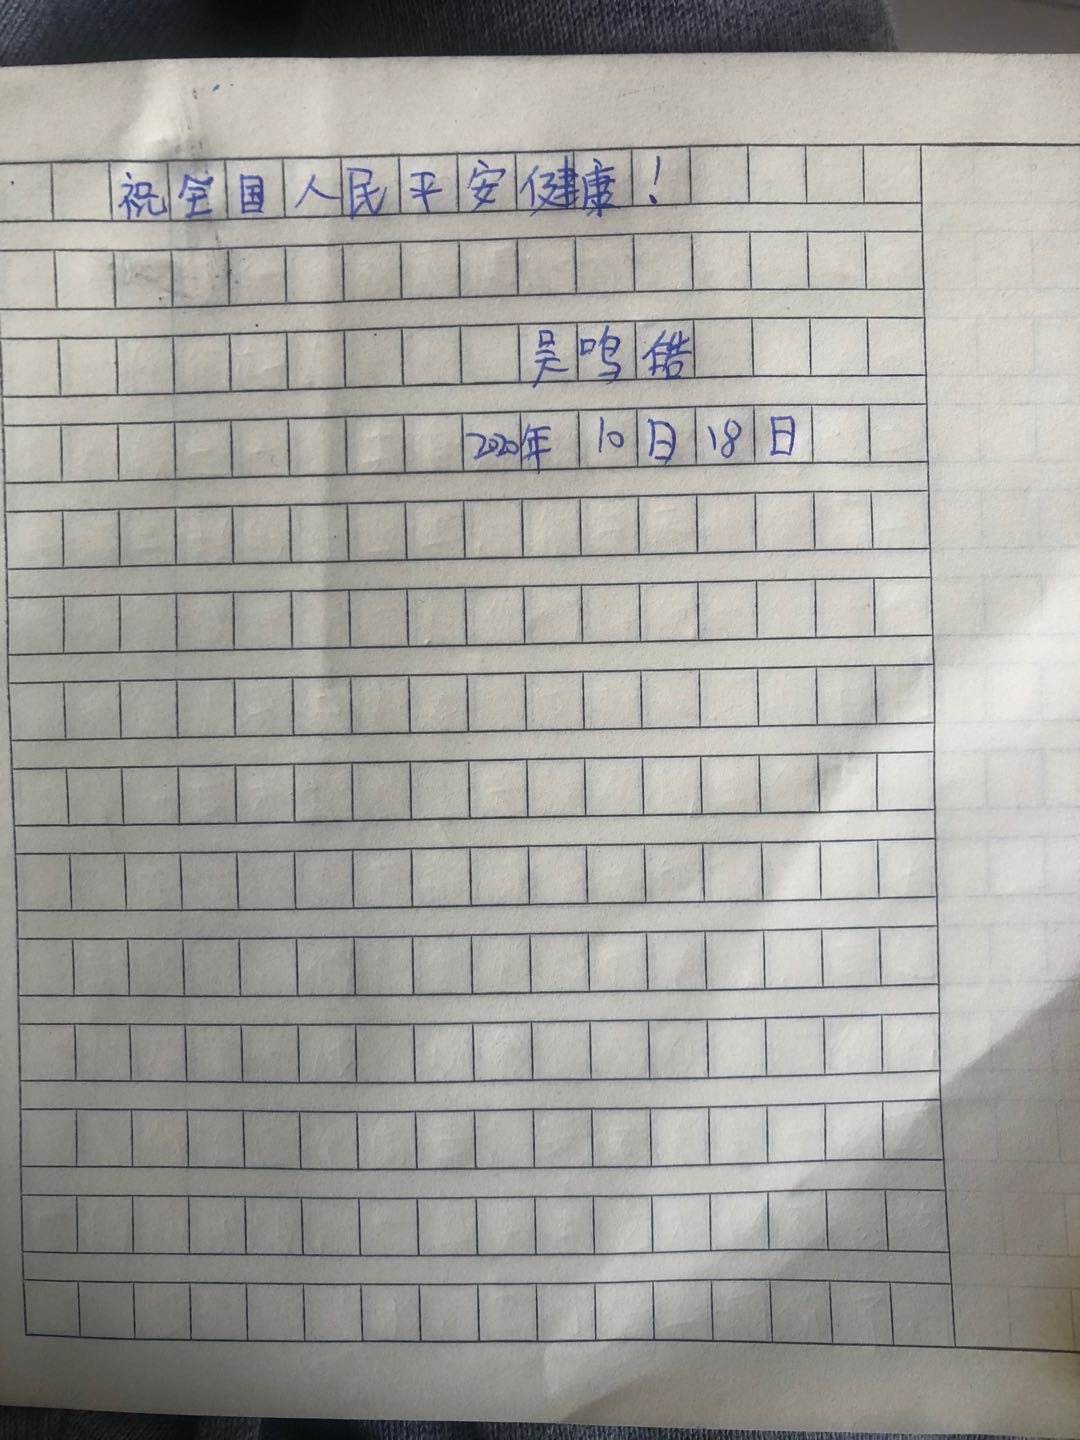 祝全国人民平安健康！
吴鸣锴
2020年10月18日